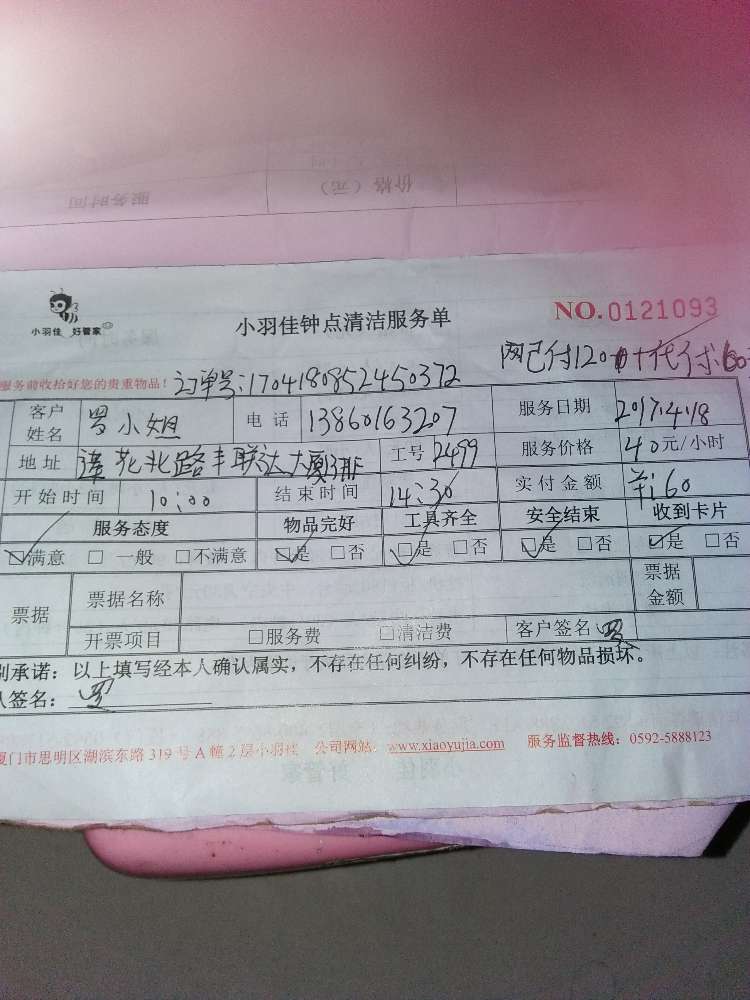 价格（元）
服务时间
小羽佳 好管家
小羽佳钟点清洁服务单
NO.0121093
服务前收拾好您的贵重物品！
订单号:170418085245037​2
网已付120
客户姓名 罗小姐 电话 13860163207 服务日期 2017.4.18
地址 莲花北路丰联达大厦 工号 2499 服务价格 40元/小时
开始时间 10:00 结束时间 14:30 实付金额 ¥:60
服务态度 物品完好 工具齐全 安全结束 收到卡片
☑满意 □一般 □不满意 ☑是 □否 ☑是 □否 ☑是 □否 ☑是 □否
票据 票据名称 票据金额
开票项目 □服务费 □清洁费 客户签名 罗
别承诺：以上填写经本人确认属实，不存在任何纠纷，不存在任何物品损坏。
人签名：罗
厦门市思明区湖滨东路319号A幢2层小羽佳 公司网站：www.xiaoyujia.com 服务监督热线：0592-5888123